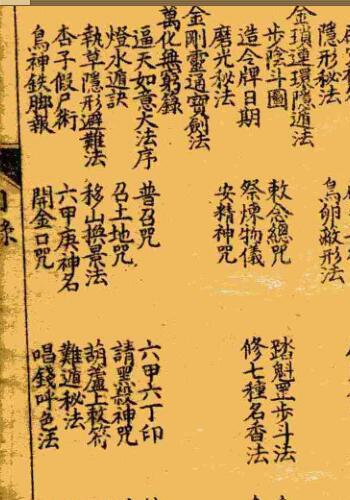 隱形秘法 鳥卵敝形法
金瑣連環隱遁法
步陰斗圖 敕念總咒 踏魁罡步斗法
造令牌日期 祭煉物儀 修七種名香法
磨光秘法 安精神咒
金剛靈通寶劍法
萬化無窮錄
逼天如意大法序 普召咒 六甲六丁印
燈水遁訣 召土地咒 請黑煞神咒
執草隱形避難法 移山換景法 葫蘆上救符
杏子假尸術 六甲庚神名 難遁秘法
鳥神鉄脚報 開金口咒 唱錢呼色法